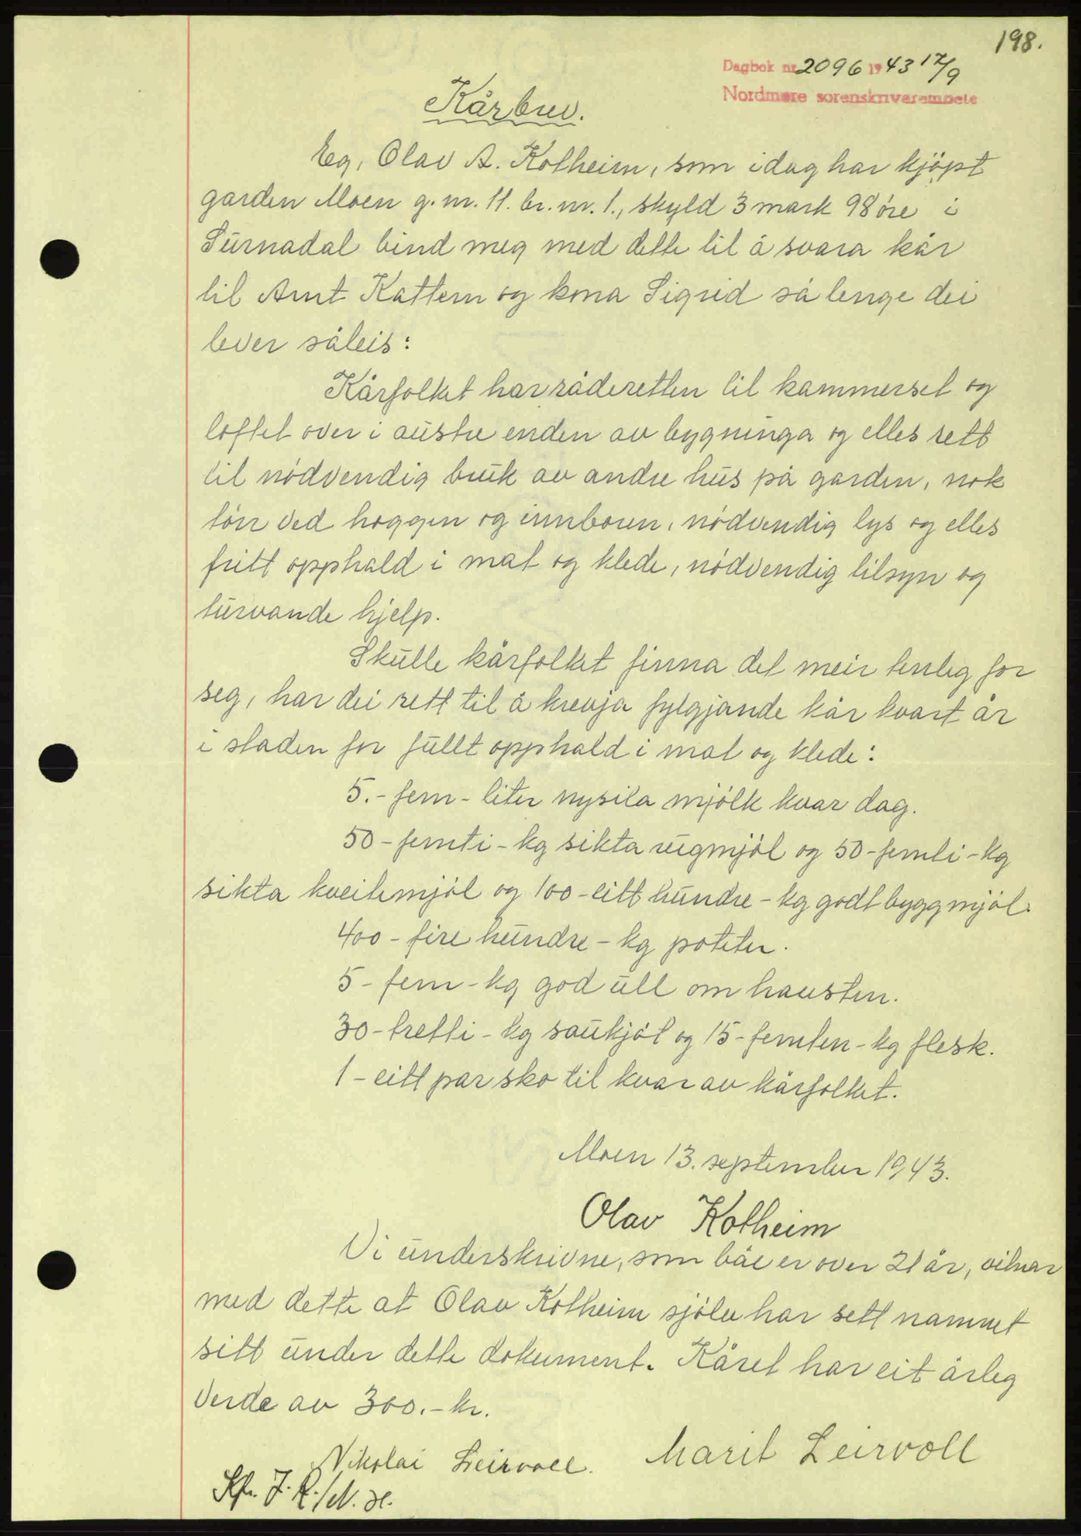 198.
Dagbok nr. 2096 1943 17/9
Nordmøre sorenskriverembete
Kårbrev.
Eg, Olav A. Kotheim, som idag har kjöpt
garden Moen g.nr. 11. br.nr. 1., skyld 3 mark 98 øre i
Surnadal bind meg med dette til å svara kår
til Arnt Kattem og kona Sigrid så lenge dei
lever såleis:
Kårfolket har råderetten til kammerset og
loftet over i austre enden av bygninga og elles rett
til nödvendig bruk av andre hus på garden, nok
törr ved hoggen og innboren, nödvendig lys og elles
fritt opphald i mat og klede, nödvendig tilsyn og
turvande hjelp.
Skulle kårfolket finna det meir tenleg for
seg, har dei rett til å krevja fylgjande kår kvart år
i staden for fullt opphald i mat og klede:
5.- fem - liter nysila mjólk kvar dag.
50 - femti - kg sikta rugmjöl og 50 - femti - kg
sikta kveitemjöl og 100 - eitt hundre - kg godt byggmjöl.
400 - fire hundre - kg poteter.
5 - fem - kg god ull om hausten.
30 - tretti - kg saukjöt og 15 - femten - kg flesk.
1 - eitt par sko til kvar av kårfolket.
Moen 13. september 1943.
Olav Kotheim
Vi underskrivne, som båe er over 21 år, vitnar
med dette at Olav Kotheim sjölv har sett namnet
sitt under dette dokument. Kåret har eit årleg
verde av 300.- kr.
Nikolai Leirvoll. Marit Leirvoll